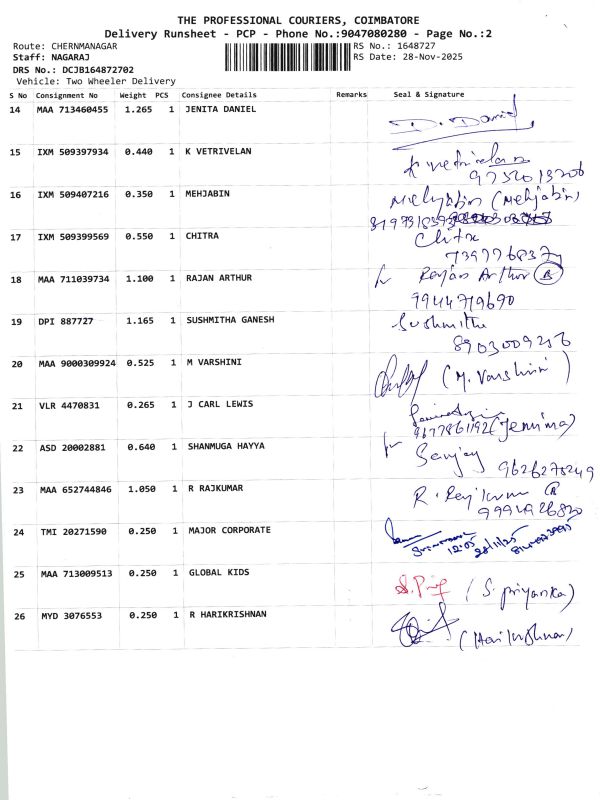 THE PROFESSIONAL COURIERS, COIMBATORE
Delivery Runsheet - PCP - Phone No.:9047080280 - Page No.:2
Route: CHERNMANAGAR
RS No.: 1648727
Staff: NAGARAJ
RS Date: 28-Nov-2025
DRS No.: DCJB164872702
Vehicle: Two Wheeler Delivery
S No Consignment No Weight PCS Consignee Details Remarks Seal & Signature
14 MAA 713460455 1.265 1 JENITA DANIEL
D. Daniel
15 IXM 509397934 0.440 1 K VETRIVELAN
K Vetrivelan
16 IXM 509407216 0.350 1 MEHJABIN
(Mehjabin)
17 IXM 509399569 0.550 1 CHITRA
Chitra
18 MAA 711039734 1.100 1 RAJAN ARTHUR
Rajan Arthur
9944719690
19 DPI 887727 1.165 1 SUSHMITHA GANESH
Sushmitha
8903009256
20 MAA 9000309924 0.525 1 M VARSHINI
(M. Varshini)
21 VLR 4470831 0.265 1 J CARL LEWIS
9677861192 (Jemima)
22 ASD 20002881 0.640 1 SHANMUGA HAYYA
Sanjay
9626278249
23 MAA 652744846 1.050 1 R RAJKUMAR
R. Rajkumar
9994926820
24 TMI 20271590 0.250 1 MAJOR CORPORATE
12:05 28/11/25
25 MAA 713009513 0.250 1 GLOBAL KIDS
S. Priy (S. priyanka)
26 MYD 3076553 0.250 1 R HARIKRISHNAN
(Harikrishnan)